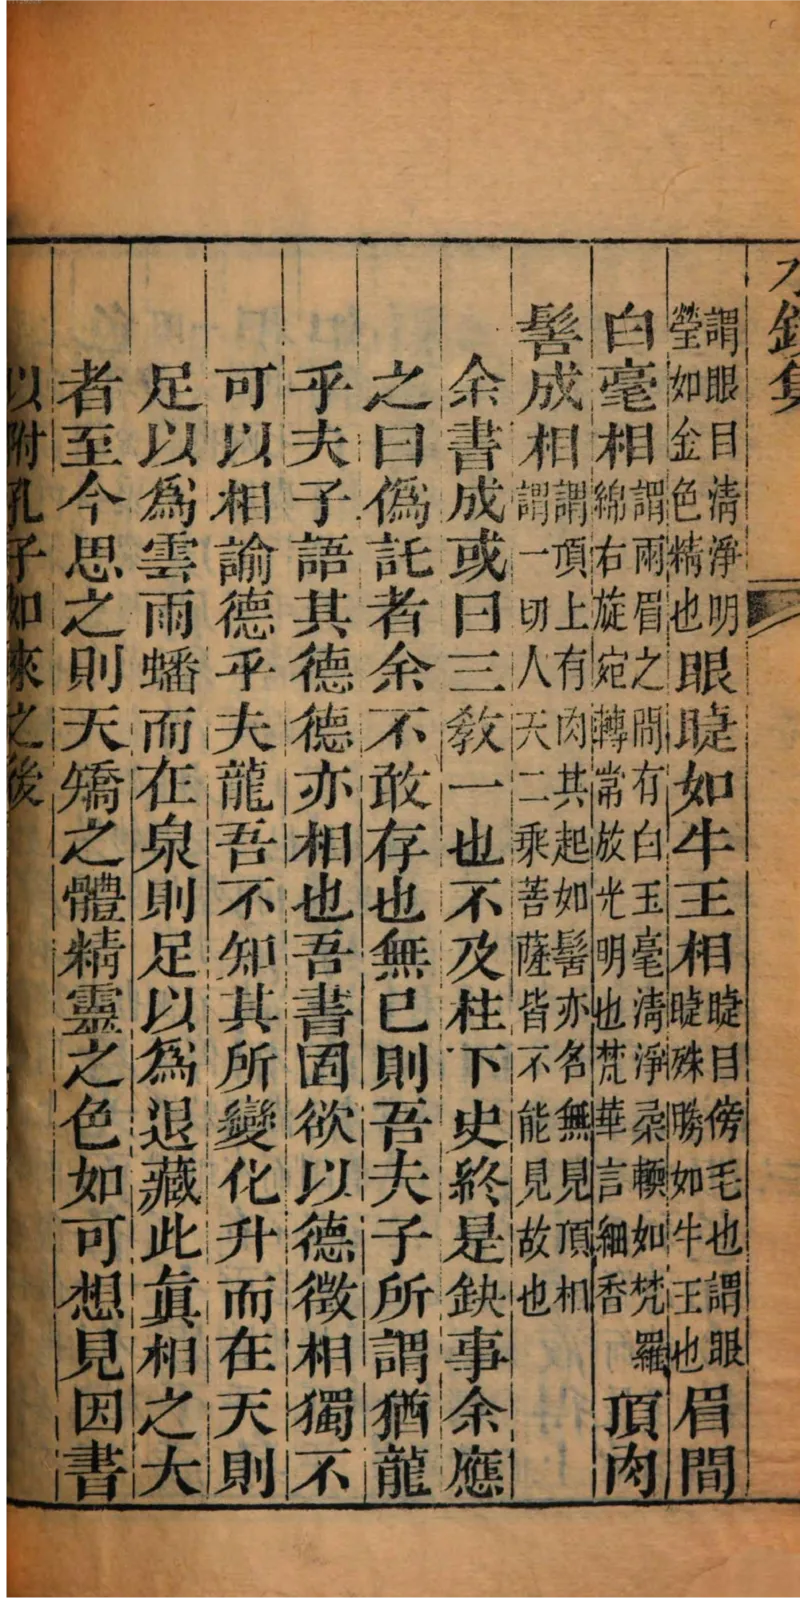 謂眼目清淨明瑩如金色精也眼睫如牛王相睫目傍毛也謂眼睫殊勝如牛王也眉間
白毫相謂兩眉之間有白玉毫清淨柔輭如梵羅綿右旋宛轉常放光明也梵華言細香頂肉
髻成相謂頂上有肉其起如髻亦名無見頂相謂一切人天二乘菩薩皆不能見故也
余書成或曰三教一也不及柱下史終是缺事余應
之曰僞託者余不敢存也無已則吾夫子所謂猶龍
乎夫子語其德德亦相也吾書固欲以德徵相獨不
可以相諭德乎夫龍吾不知其所變化升而在天則
足以爲雲雨蟠而在泉則足以爲退藏此眞相之大
者至今思之則天矯之體精靈之色如可想見因書
以附孔子如來之後